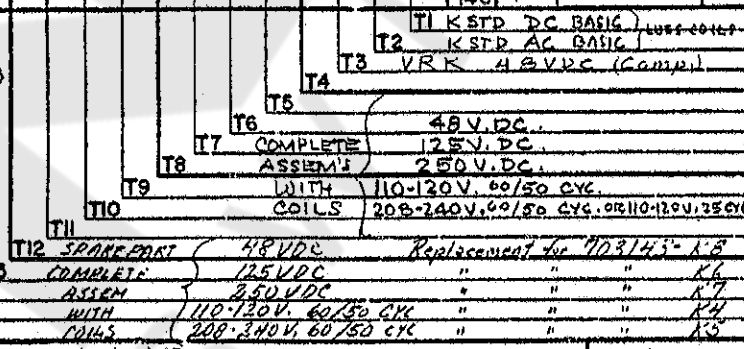 T1 K STD DC BASIC
T2 K STD AC BASIC LESS COILS
T3 VRK 48VDC (Comp.)
T4
T5
T6 48 V. DC.
T7 COMPLETE 125 V. DC.
T8 ASSEM'S 250 V. DC.
T9 WITH 110-120 V. 60/50 CYC.
T10 COILS 208-240V. 60/50 CYC. OR 110-120V. 25 CY
T11
T12 SPARE PART 48 VDC Replacement for 703143- K8
COMPLETE 125 VDC " " " K6
ASSEM 250 VDC " " " K7
WITH 110-120V. 60/50 CYC " " " K4
COILS 208-240V. 60/50 CYC " " " K5